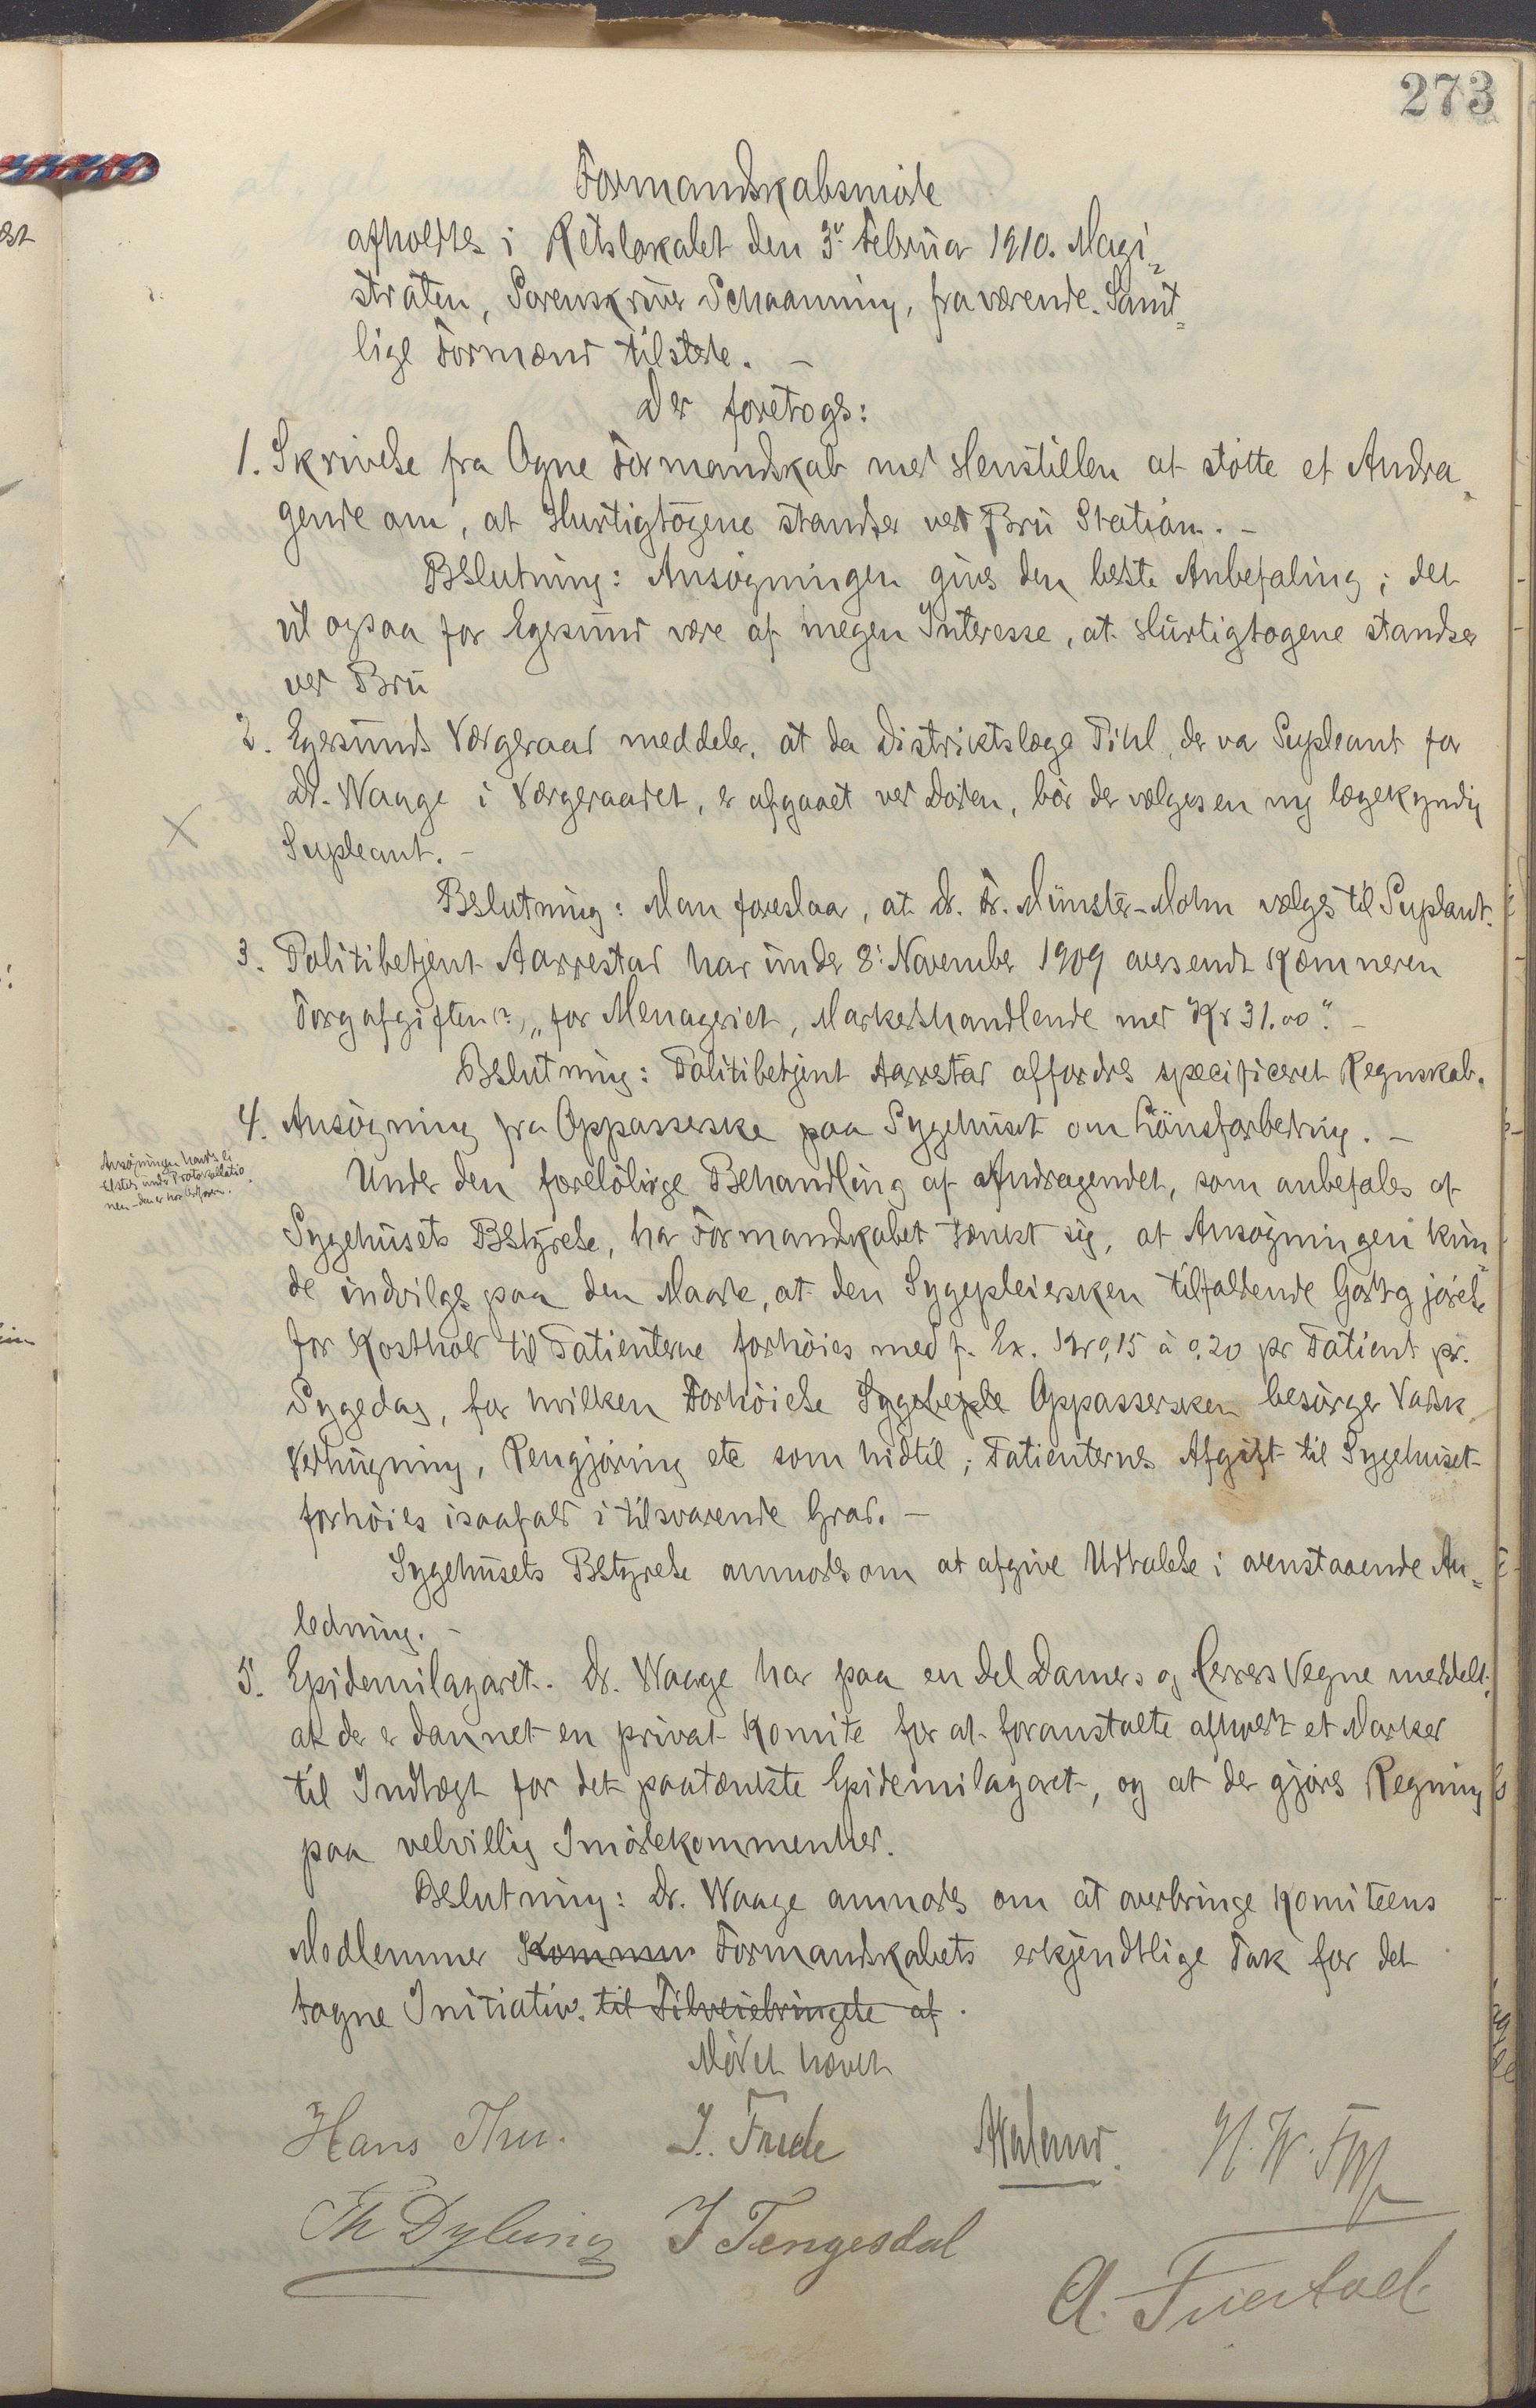 273
Formandskabsmöde
afholdtes i Retslokalet den 3de Februar 1910. Magi=
straten, Sorenskriver Schaanning, fraværende. Samt=
lige Formænd tilstede. -
Der foretoges:
1. Skrivelse fra Ogne Formandskab med Henstillen at stötte et Andra=
gende om, at Hurtigtogene standser ved Bru Station. -
Beslutning: Ansögningen gives den bedste Anbefaling; det
vil ogsaa for Egersund være af megen Interesse, at Hurtigtogene standser
ved Bru
2. Egersunds Værgeraad meddeler, at da Distriktslæge Pihl, der var Supleant for
Dr. Waage i Værgeraadet, er afgaaet ved Döden, bör der vælges en ny lægekyndig
Supleant. -
Beslutning: Man foreslaar, at Dr. Fr. Münster-Mohn vælges til Supleant.
3. Politibetjent Aarrestad har under 8: November 1909 oversendt Kæmneren
Torgafgiften (?) "for Menageriet, Markedshandlende med Kr 31.00". -
Beslutning: Politibetjent Aarrestad affordres specificeret Regnskab.
4. Ansögning fra Oppasserske paa Sygehuset om Lönsforbedring. -
Under den forelöbige Behandling af Andragendet, som anbefales af
Sygehusets Bestyrelse, har Formandskabet tænkt sig, at Ansögningen kun=
de indvilges paa den Maade, at den Sygepleiersken tilfaldende Godtgjörelse
for Kosthold til Patienterne forhöies med f. Ex. Kr 0,15 à 0,20 pr Patient pr.
Sygedag, for hvilken Forhöielse Oppassersken besörger Vadsk,
Vedhugning, Rengjöring etc som hidtil; Patienternes Afgift til Sygehuset
forhöies isaafald i tilsvarende Grad. -
Sygehusets Bestyrelse anmodes om at afgive Udtalelse i ovenstaaende An=
ledning. -
5. Epidemilazaret. Dr. Waage har paa en del Damers og Herrers Vegne meddelt,
at der er dannet en privat Komite for at foranstalte afholdt et Marked
til Indtægt for det paatænkte Epidemilazaret, og at der gjöres Regning
paa velvillig Imödekommenhed.
Beslutning: Dr. Waage anmodes om at overbringe Komiteens
Medlemmer Kommun Formandskabets erkjendtlige Tak for det
tagne Initiativ. til Tilveiebringelse af.
Mödet hævet
Hans Thu. J. Frede H. W.
Th Dybing J Tengesdal
A. Puntervold